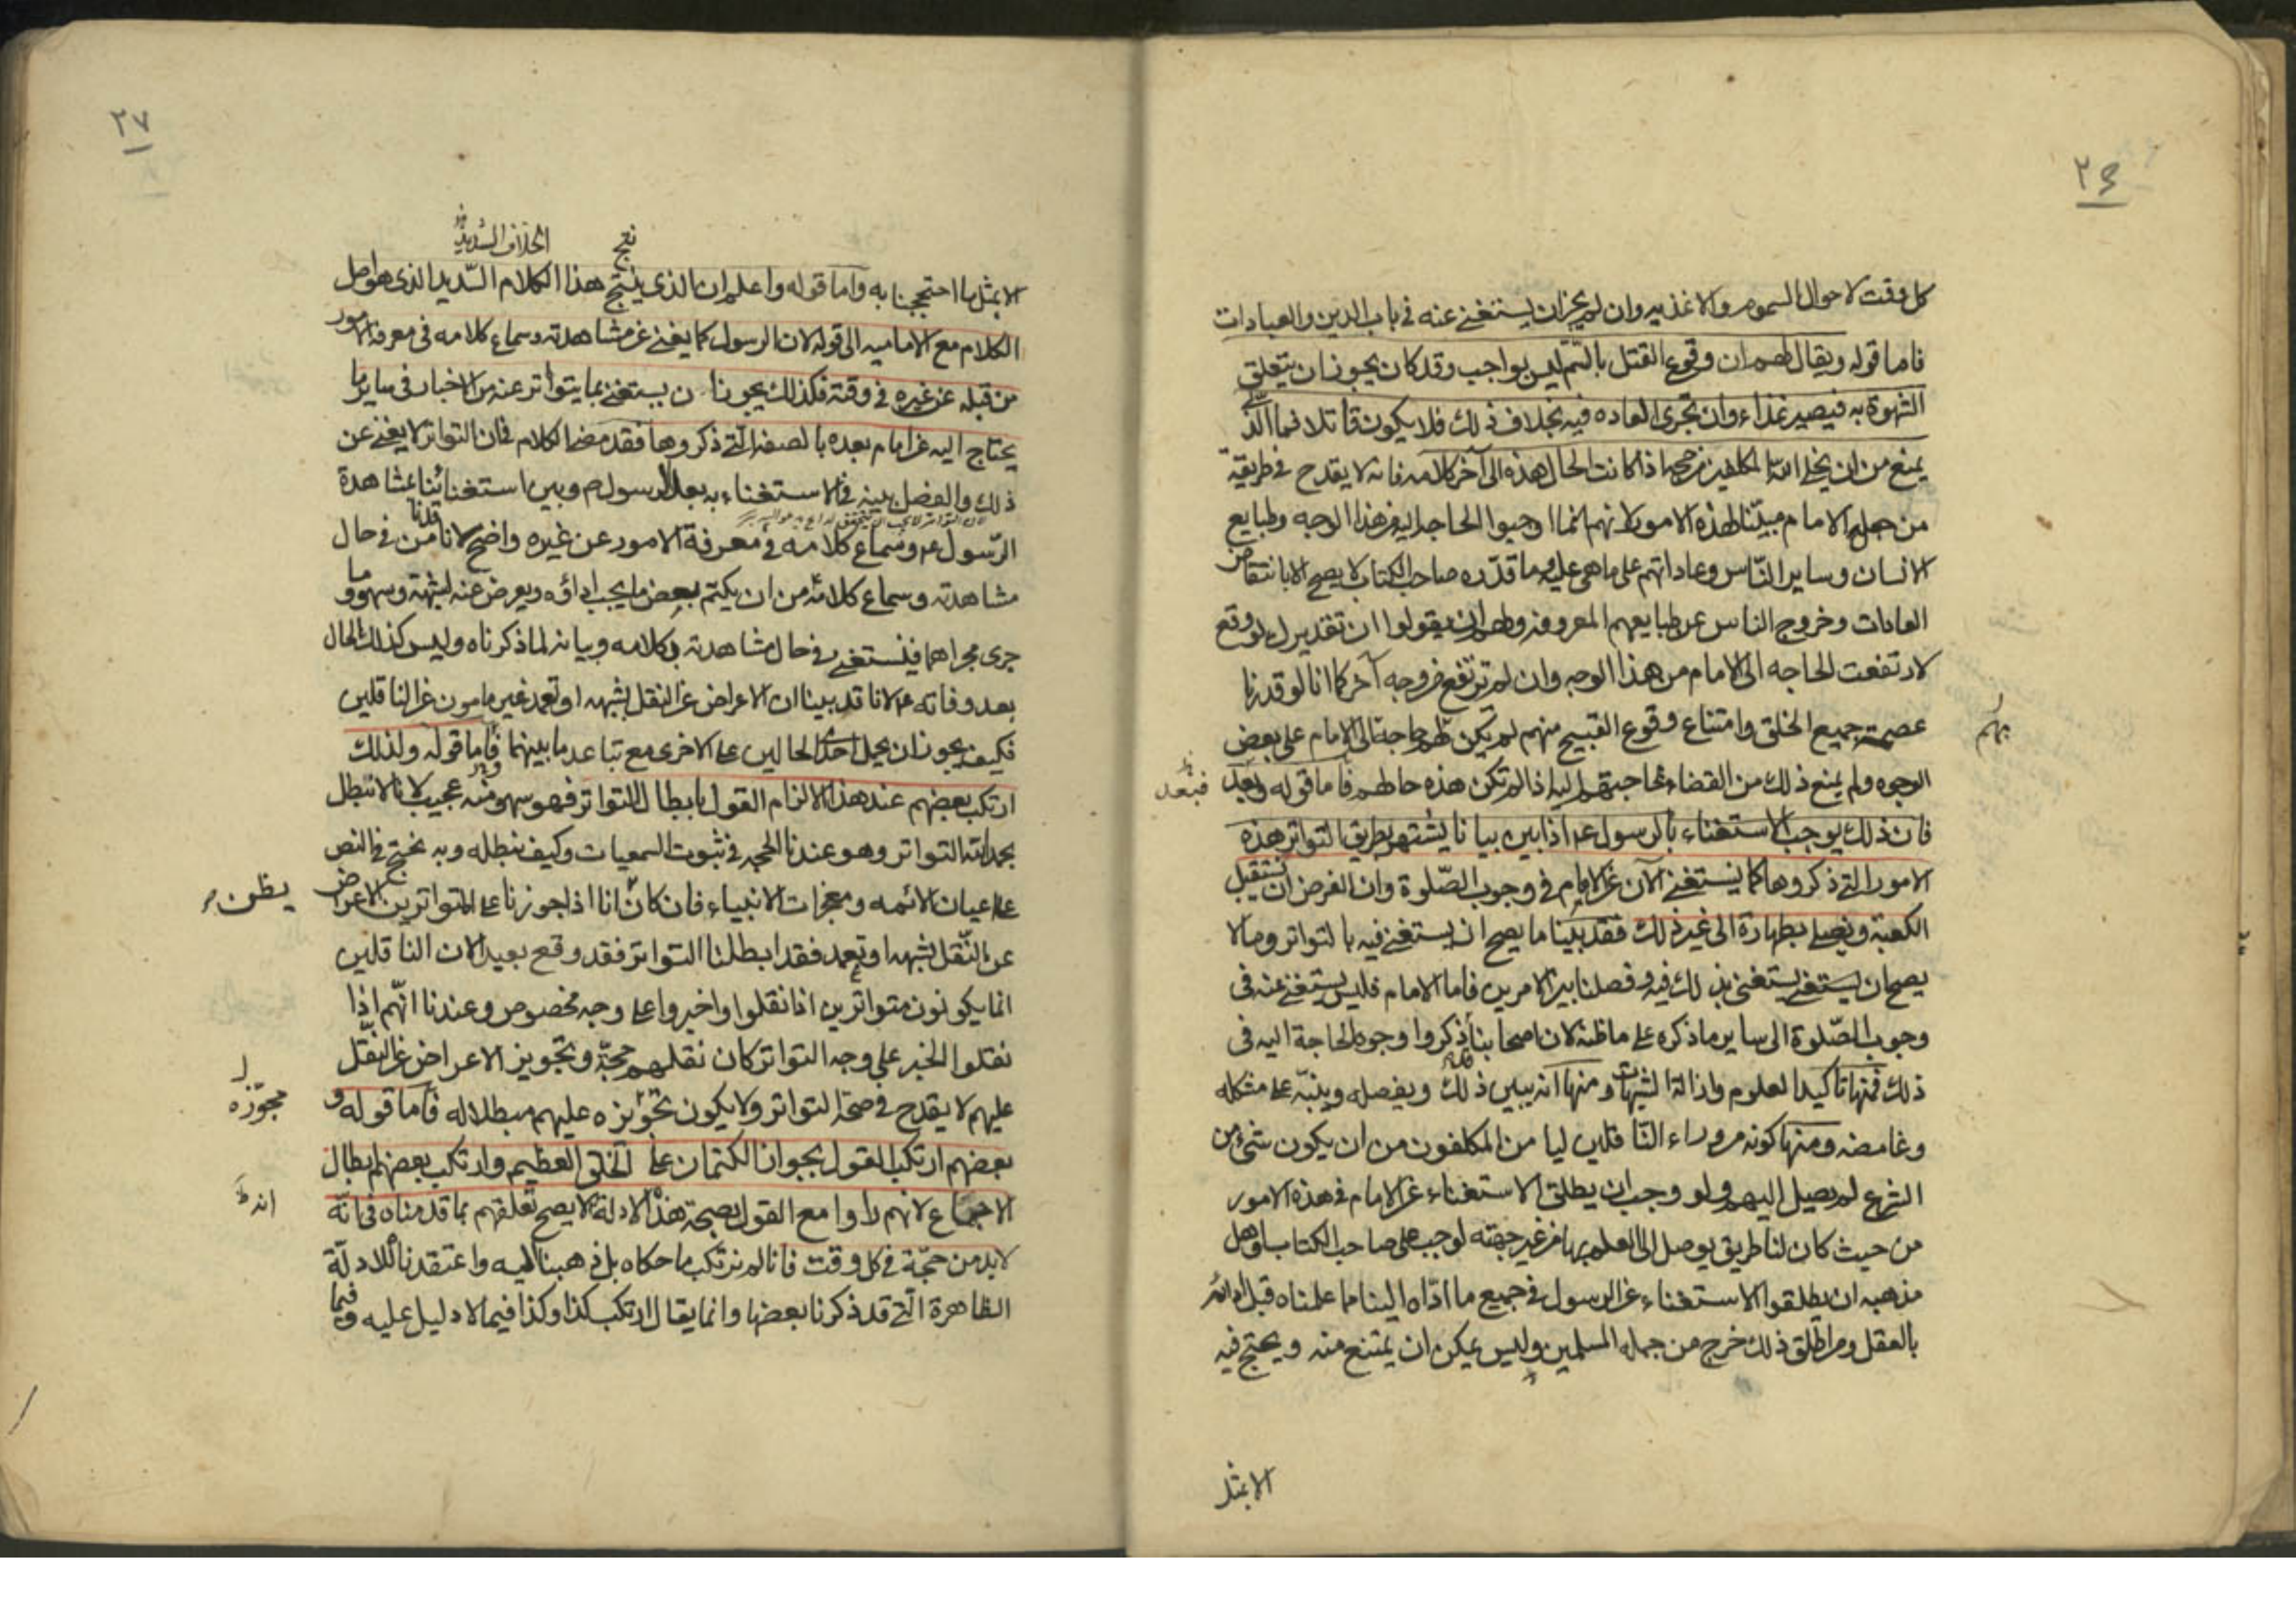 ٢٦
كل وقت لاحوال السموم والاغذيه وان لم يجز ان يستغنى عنه في باب الدين والعبادات
فاما قوله ويقال لهم ان وقوع القتل بالسّم ليس بواجب وقد كان يجوز ان يتعلق
الشهوة به فيصير غذاء وان تجرى العاده فيه بخلاف ذلك فلا يكون قاتلا فما الّذى
يمنع من ان يخلى الله المكلفين من حجه اذا كانت الحال هذه الى آخر كلامه فانه لا يقدح في طريقة
من جعل الامام مبيّنا لهذه الامور لانهم انما اوجبوا الحاجه اليه من هذا الوجه وطبايع
الانسان وساير النّاس وعاداتهم على ما هى عليه وما قدّره صاحب الكتاب لا يصح الا بانتقاض
العادات وخروج الناس عن طبايعهم المعروفه ولهم ان يقولوا ان تقديرك لو وقع
لارتفعت الحاجه الى الامام من هذا الوجه وان لم ترتفع من وجه آخر كما انا لو قدرنا
عصمة جميع الخلق وامتناع وقوع القبيح منهم لم يكن لهم حاجة الى الامام على بعض
بهم
الوجوه ولم يمنع ذلك من القضاء بحاجتهم اليه اذا لم تكن هذه حالهم فاما قوله وبعد
فبعد ظ
فان ذلك يوجب الاستغناء بالرسول عم اذا بين بيانا يشتهر بطريق التواتر هذه
الامور التى ذكروها كما يستغنى الآن عن الامام في وجوب الصّلوة وان الفرض ان نستقبل
الكعبة ونصلى بطهارة الى غير ذلك فقد بيّنا ما يصح ان يستغنى فيه بالتواتر وما لا
يصح ان يستغنى يستغنى بذلك فيه وفصلنا بين الامرين فاما الامام فليس يستغنى عنه فى
وجوب الصّلوة الى ساير ما ذكره على ما ظنه لان اصحابنا قد ذكروا وجوه الحاجة اليه فى
ذلك فمنها تاكيد العلوم وازالة الشبهات ومنها انه يبين ذلك ويفصله وينبّه على مشكله
وغامضه ومنها كونه من وراء النّاقلين ليامن المكلفون من ان يكون شئ من
الشرع لم يصل اليهم ولو وجب ان يطلق الاستغناء عن الامام في هذه الامور
من حيث كان لنا طريق يوصل الى العلم بها من غير جهته لوجب على صاحب الكتاب واهل
مذهبه ان يطلقوا الاستغناء عن الرسول في جميع ما ادّاه الينا مما علمناه قبل ادائه
بالعقل ومن اطلق ذلك خرج من جمله المسلمين وليس يمكن ان يمتنع منه ويحتج فيه
الا بمثل
٢٧
نتج
الخلاف الشديد
الا بمثل ما احتججنا به واما قوله واعلم ان الذى ينتج هذا الكلام السّديد الذى هو اصل
الكلام مع الاماميه الى قوله لان الرسول كما يغنى عن مشاهدته وسماع كلامه فى معرفة الامور
من قبله عن غيره في وقته فكذلك يجوز ان يستغنى بما يتواتر عنه من الاخبار فى ساير ما
يحتاج اليه عن امام بعده بالصفة التى ذكروها فقد مضى الكلام فان التواتر لا يغنى عن
ذلك والفضل بينه في الاستغناء به بعد الرسول ص وبين استغنائنا بمشاهدة
الرّسول عم وسماع كلامه في معرفة الامور عن غيره واضح لانا قدنا من في حال
مشاهدته وسماع كلامه من ان يكتم بعض ما يجب اداؤه ويعرض عنه لشبهة وسهو وما
جرى مجراهما فنستغنى في حال مشاهدته بكلامه وبيانه لما ذكرناه وليس كذلك الحال
بعد وفاته عم لانا قد بينا ان الاعراض عن النقل بشبهه او تعمد غير مامون عن الناقلين
فكيف يجوز ان يحمل احدى الحالين على الاخرى مع تباعد ما بينهما فاما قوله ولذلك
ارتكب بعضهم عند هذا الالزام القول بابطال التواتر فهو سهو منه عجيب لانا لا نبطل
بحمد الله التواتر وهو عندنا الحجه في ثبوت السمعيات وكيف نبطله وبه نحتج في النص
على اعيان الائمه ومعجزات الانبياء فان كان انا اذا جوزنا على المتواترين الاعراض
يظن
عن النّقل بشبهه او تعمد فقد ابطلنا التواتر فقد وقع بعيدا لان الناقلين
انما يكونون متواترين اذا نقلوا واخبروا على وجه مخصوص وعندنا انّهم اذا
نقلوا الخبر على وجه التواتر كان نقلهم حجّة وتجويز الاعراض عن النقل
عليهم لا يقدح في صحة التواتر ولا يكون تجويزه عليهم مبطلا له فاما قوله و
مجوّزه
بعضهم ارتكب القول بجواز الكتمان على الخلق العظيم وارتكب بعضهم ابطال
الاجماع لانهم راوا مع القول بصحة هذه الادلة لا يصح تعلقهم بما قدمناه في انّه
انه ظ
لا بد من حجّة في كل وقت فانا لم نرتكب ما حكاه بل ذهبنا اليه واعتقدنا للادلّة
الظاهرة الّتى قد ذكرنا بعضها وانما يقال ارتكب كذا وكذا فيما لا دليل عليه وفيما